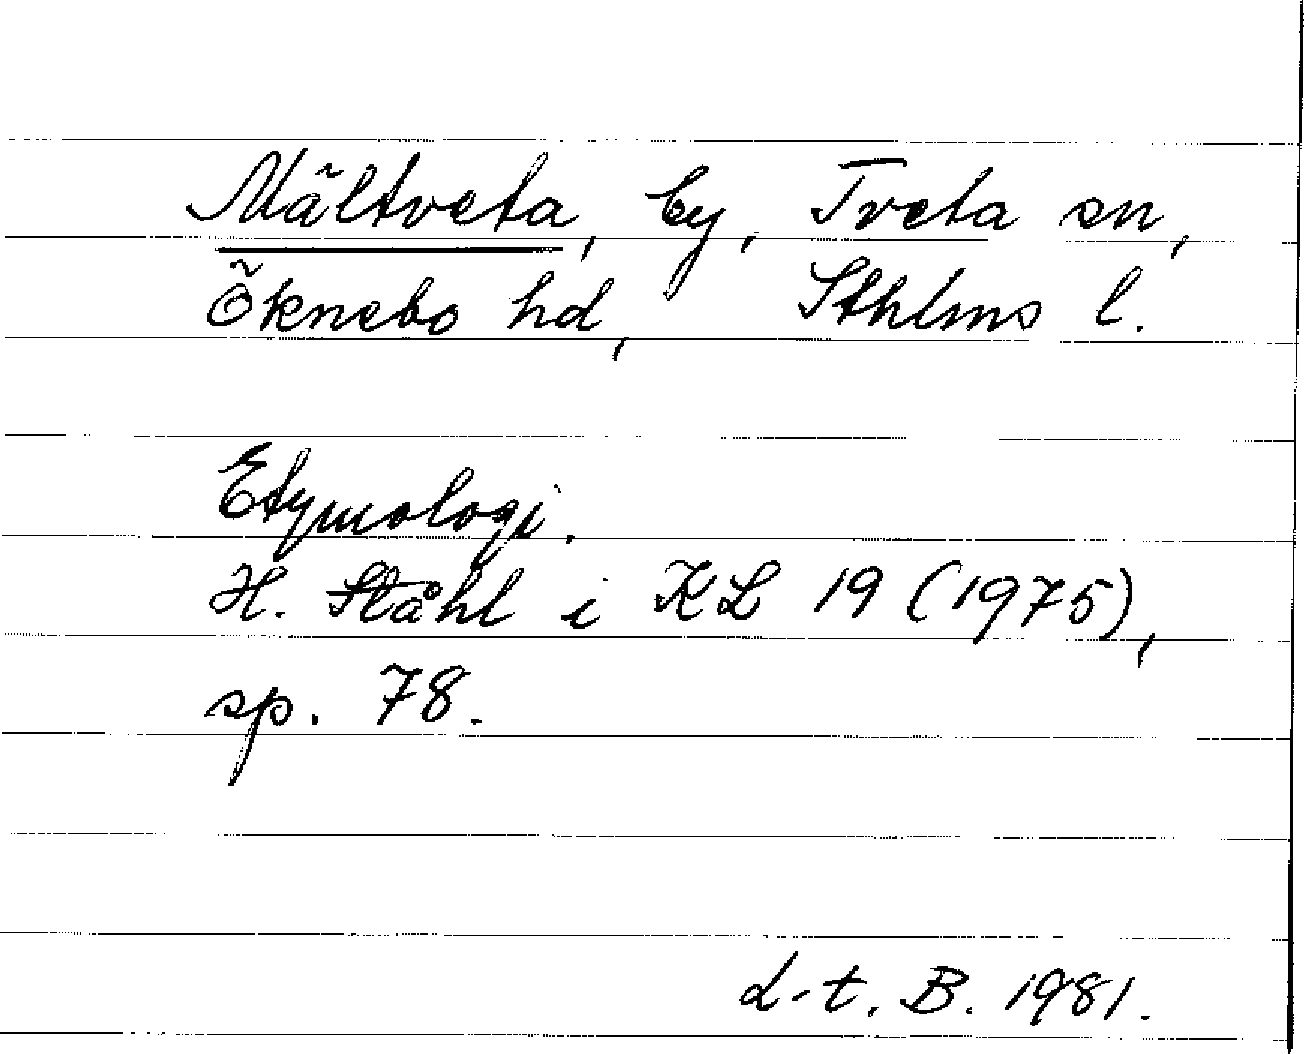 Mältveta, by, Tveta sn,
Öknebo hd, Sthlms l.
Etymologi.
H. Ståhl i KL 19 (1975),
sp. 78.
L-t. B. 1981.